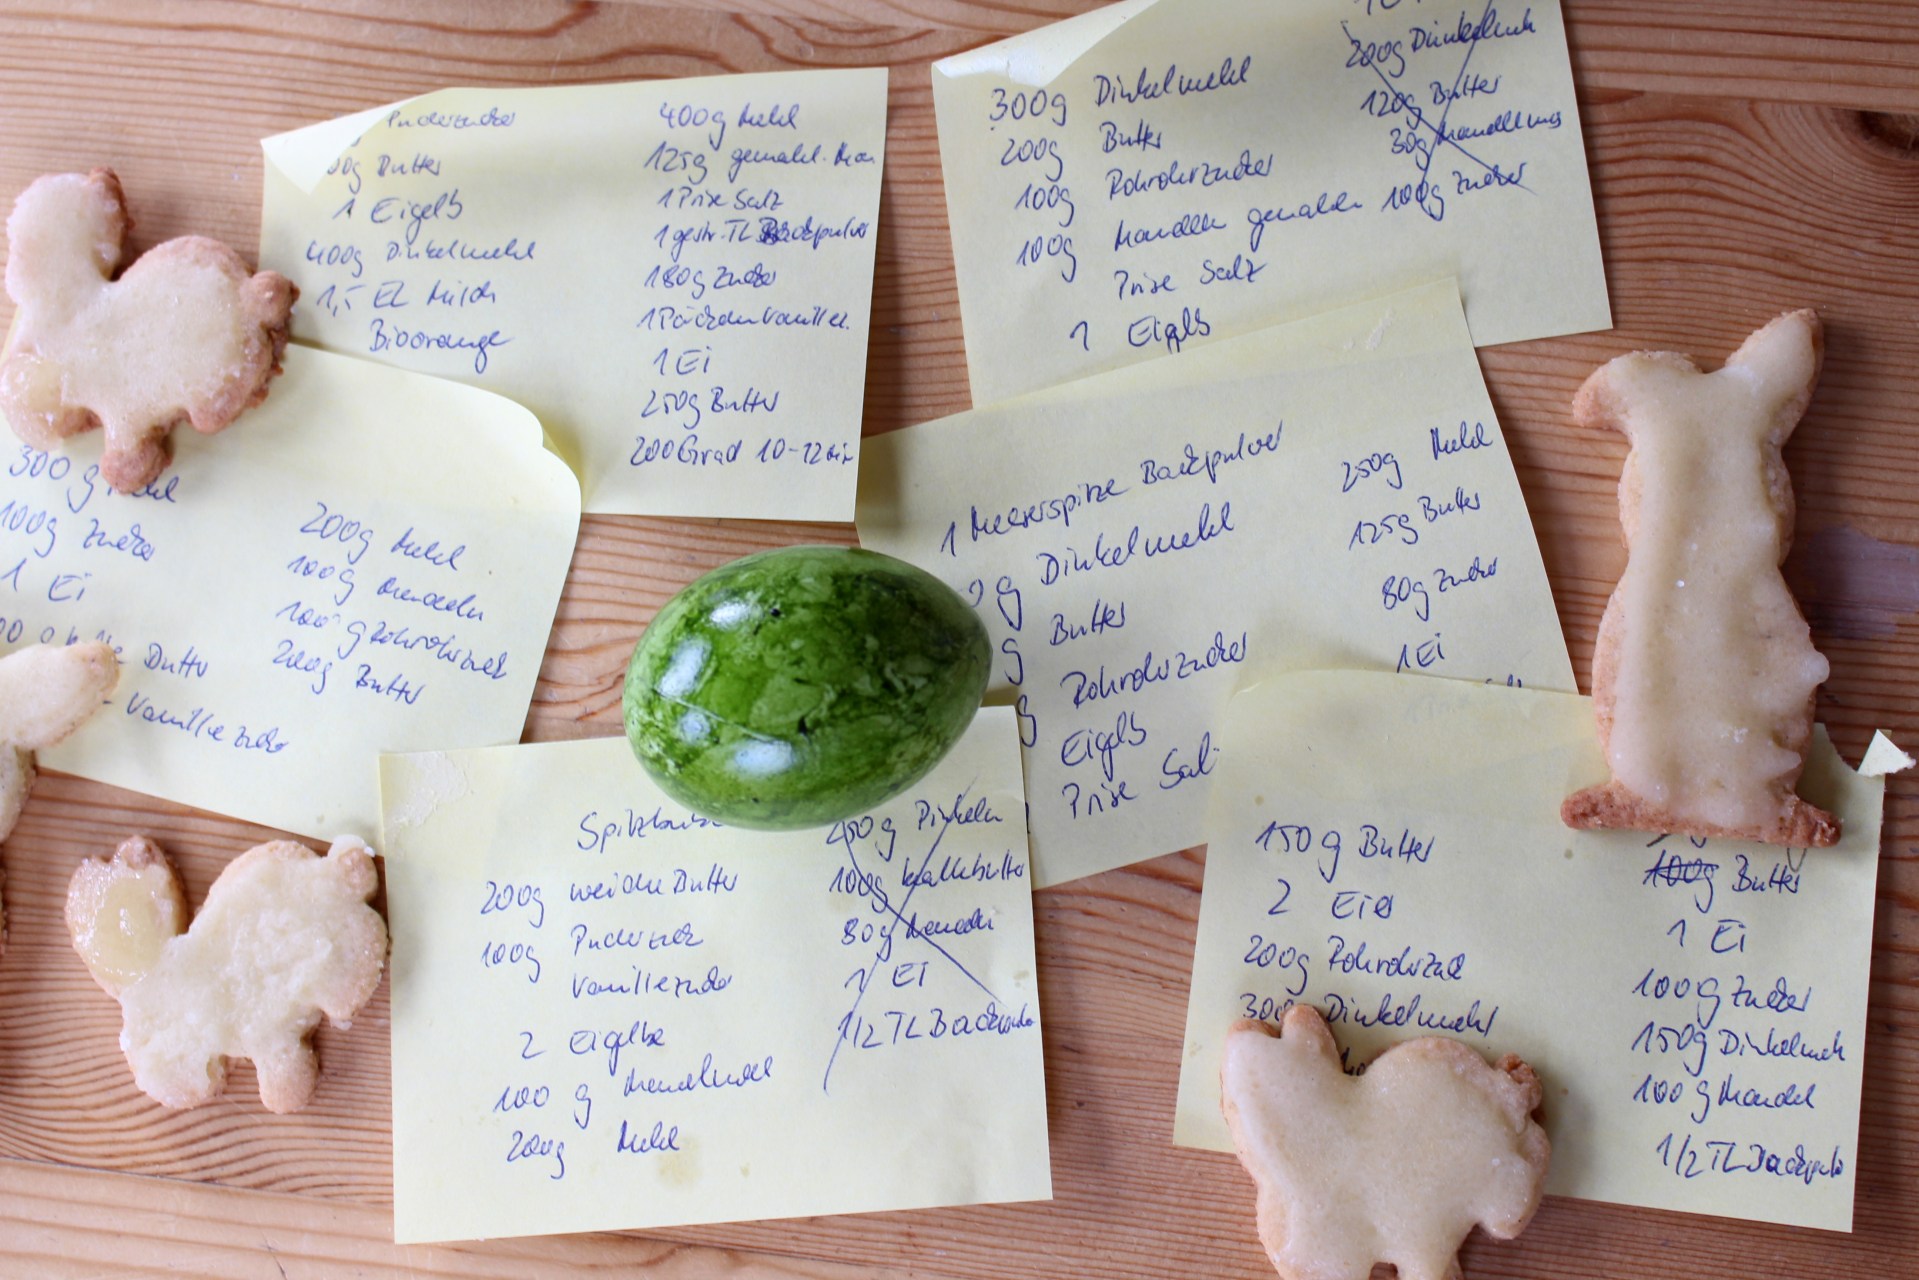 Puderzucker
Butter
1 Eigelb
400g Dinkelmehl
1,5 EL Milch
Bioorange
400g Mehl
125g gemahl. Man
1 Prise Salz
1 gestr. TL Backpulver
180g Zucker
1 Päckchen Vanillez.
1 Ei
250g Butter
200 Grad 10-12 min
300g Dinkelmehl
200g Butter
100g Rohrohrzucker
100g Mandeln gemahlen
Prise Salz
1 Eigelb
200g Dinkelmeh
120g Butter
30g
100g Zucker
300g Mehl
100g Zucker
1 Ei
Butter
Vanillezucker
200g Mehl
100g Mandeln
100g Rohrohrzuck
200g Butter
1 Messerspitze Backpulver
g Dinkelmehl
g Butter
g Rohrohrzucker
Eigelb
Prise Sal
250g Mehl
125g Butter
80g Zucker
1 Ei
200g weiche Butter
100g Puderzuck
Vanillezucker
2 Eigelbe
100 g Mandelmehl
200g Mehl
250g Dinkelm
100g kalte Butter
80g Mandeln
1 Ei
1/2 TL Backpulv
150g Butter
2 Eier
200g Rohrohrzuck
300 Dinkelmehl
100g Butter
1 Ei
100g Zucker
150g Dinkelmeh
100g Mandel
1/2 TL Backpulv